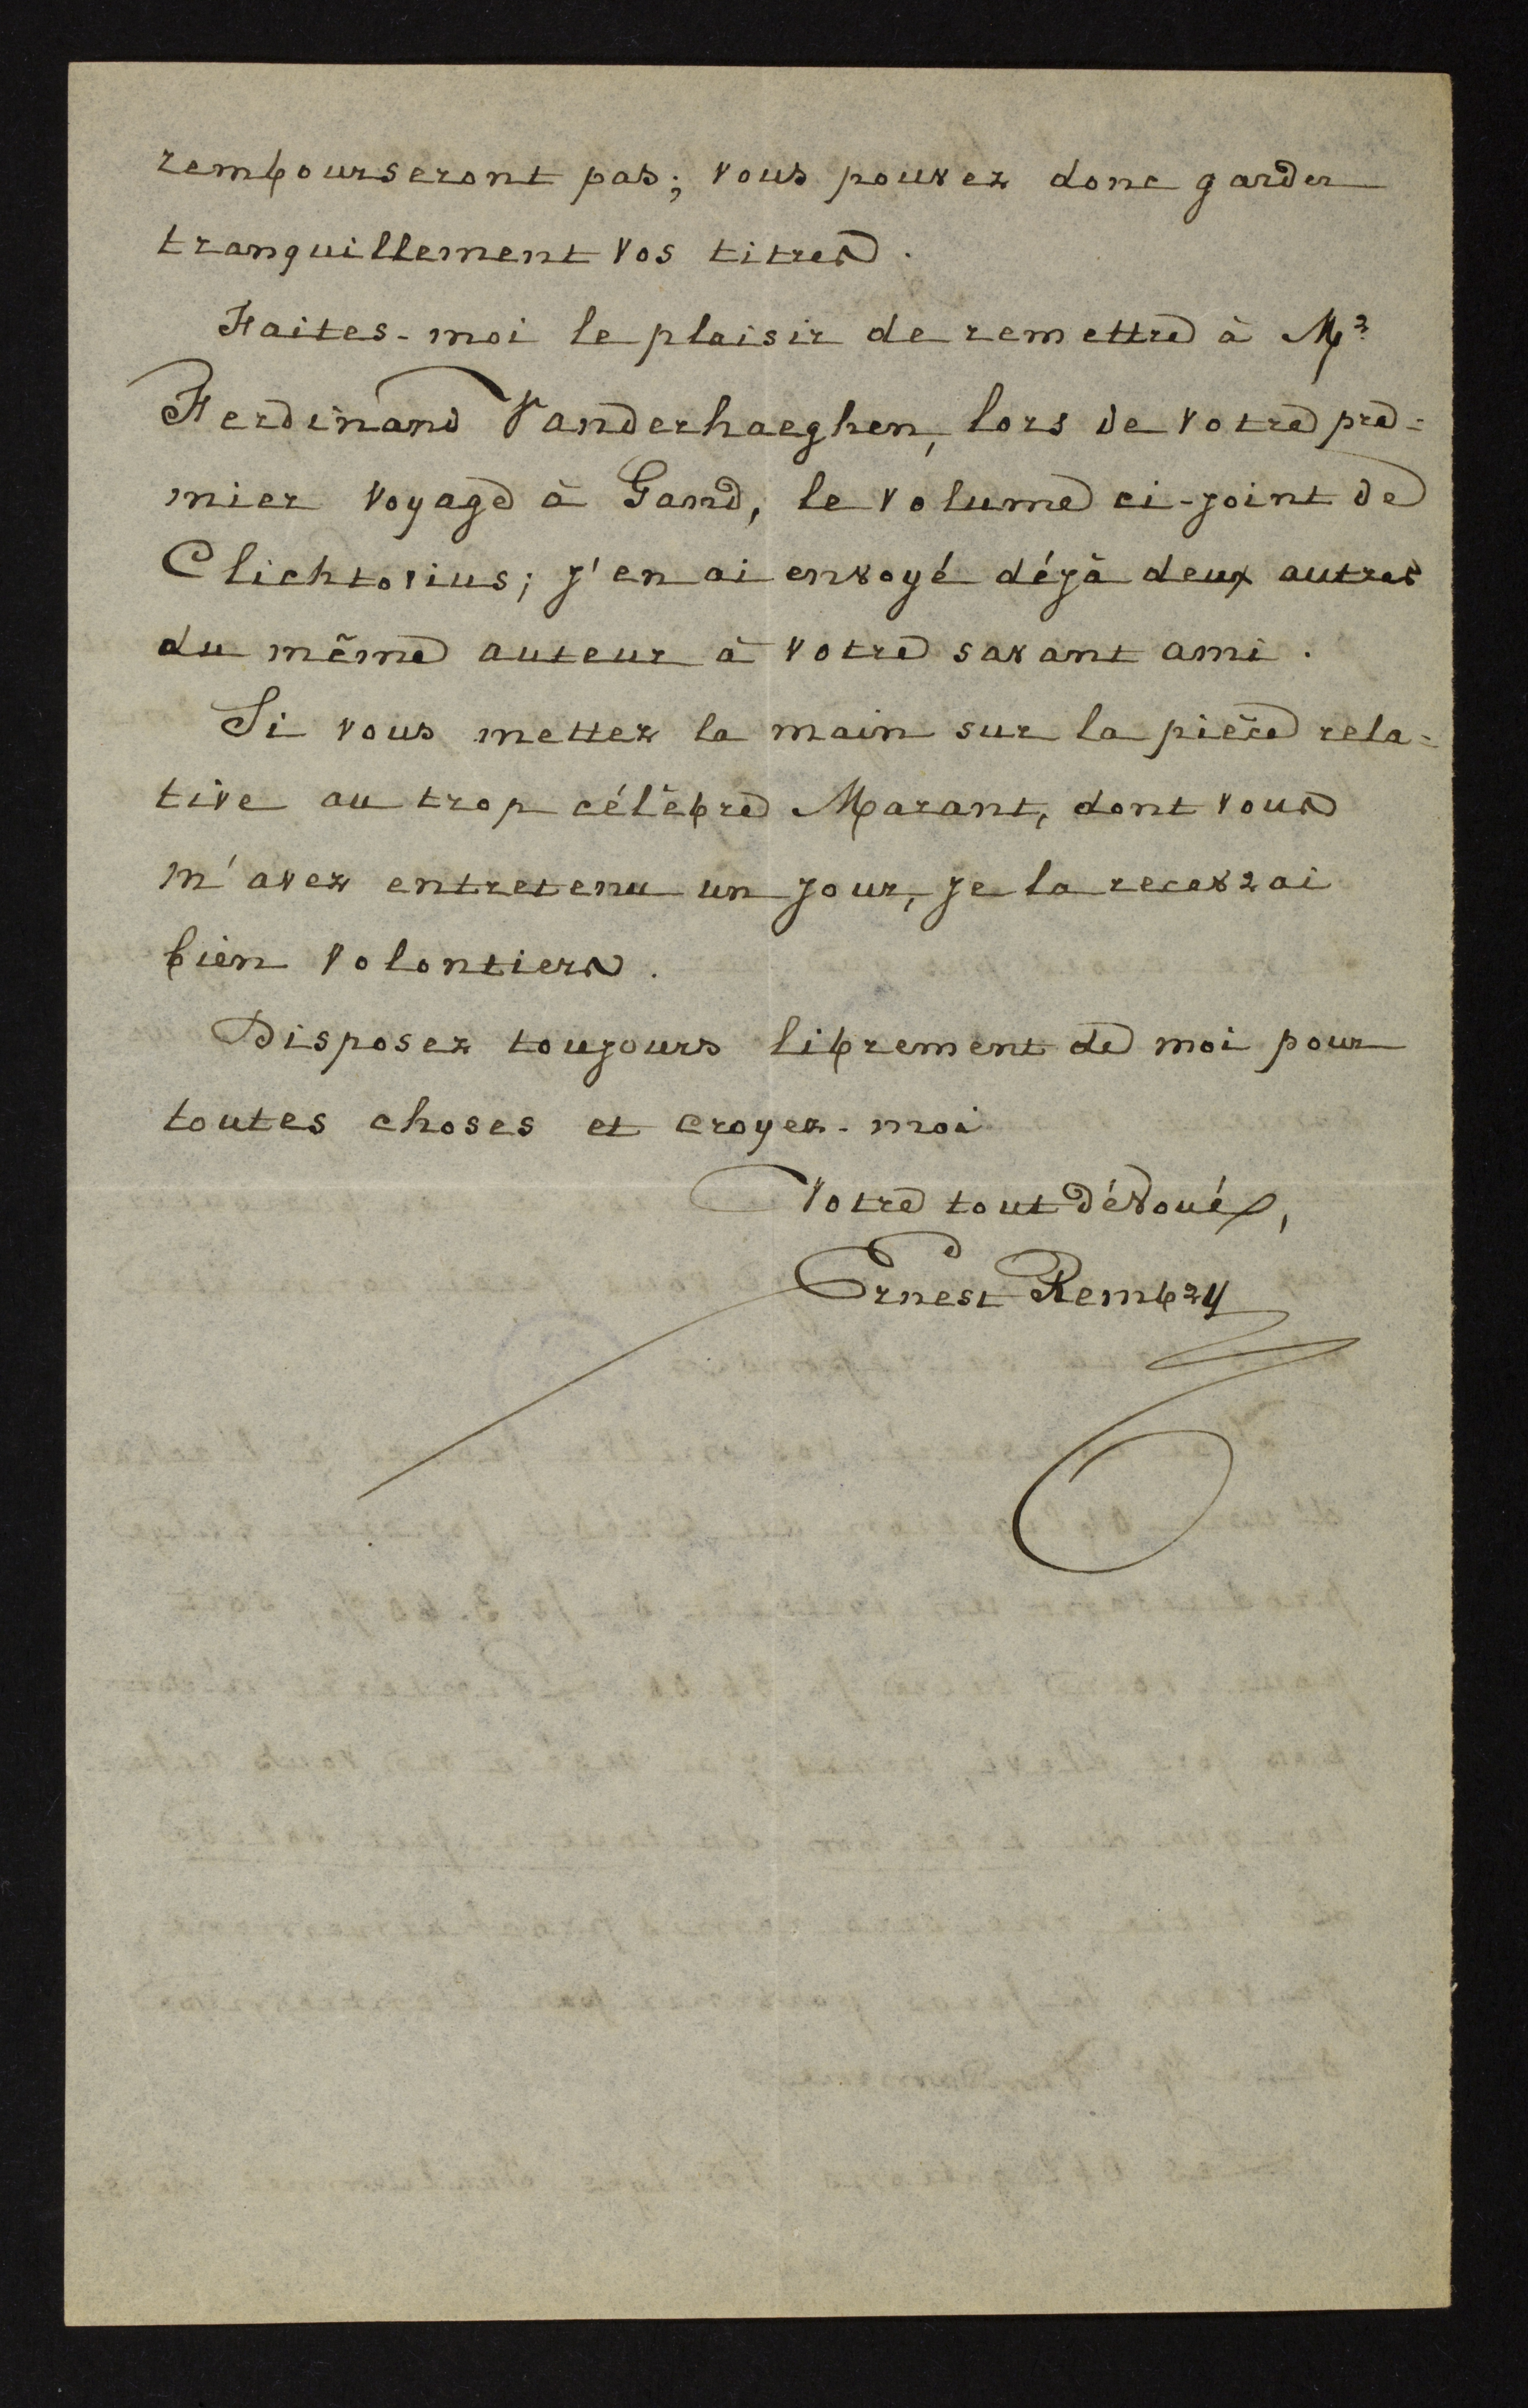 rembourseront pas; vous pouvez donc garder
tranquillement vos titres.
Faites-moi le plaisir de remettre à Mr
Ferdinand Vanderhaeghen, lors de votre pre=
mier voyage à Gand, le volume ci-joint de
Clichtovius; j'en ai envoyé déjà deux autres
du même auteur à votre savant ami.
Si vous mettez la main sur la pièce rela=
tive au trop célèbre Marant, dont vous
m'avez entretenu un jour, je la recevrai
bien volontiers.
Disposez toujours librement de moi pour
toutes choses et croyez-moi
Votre tout dévoué,
Ernest Rembry